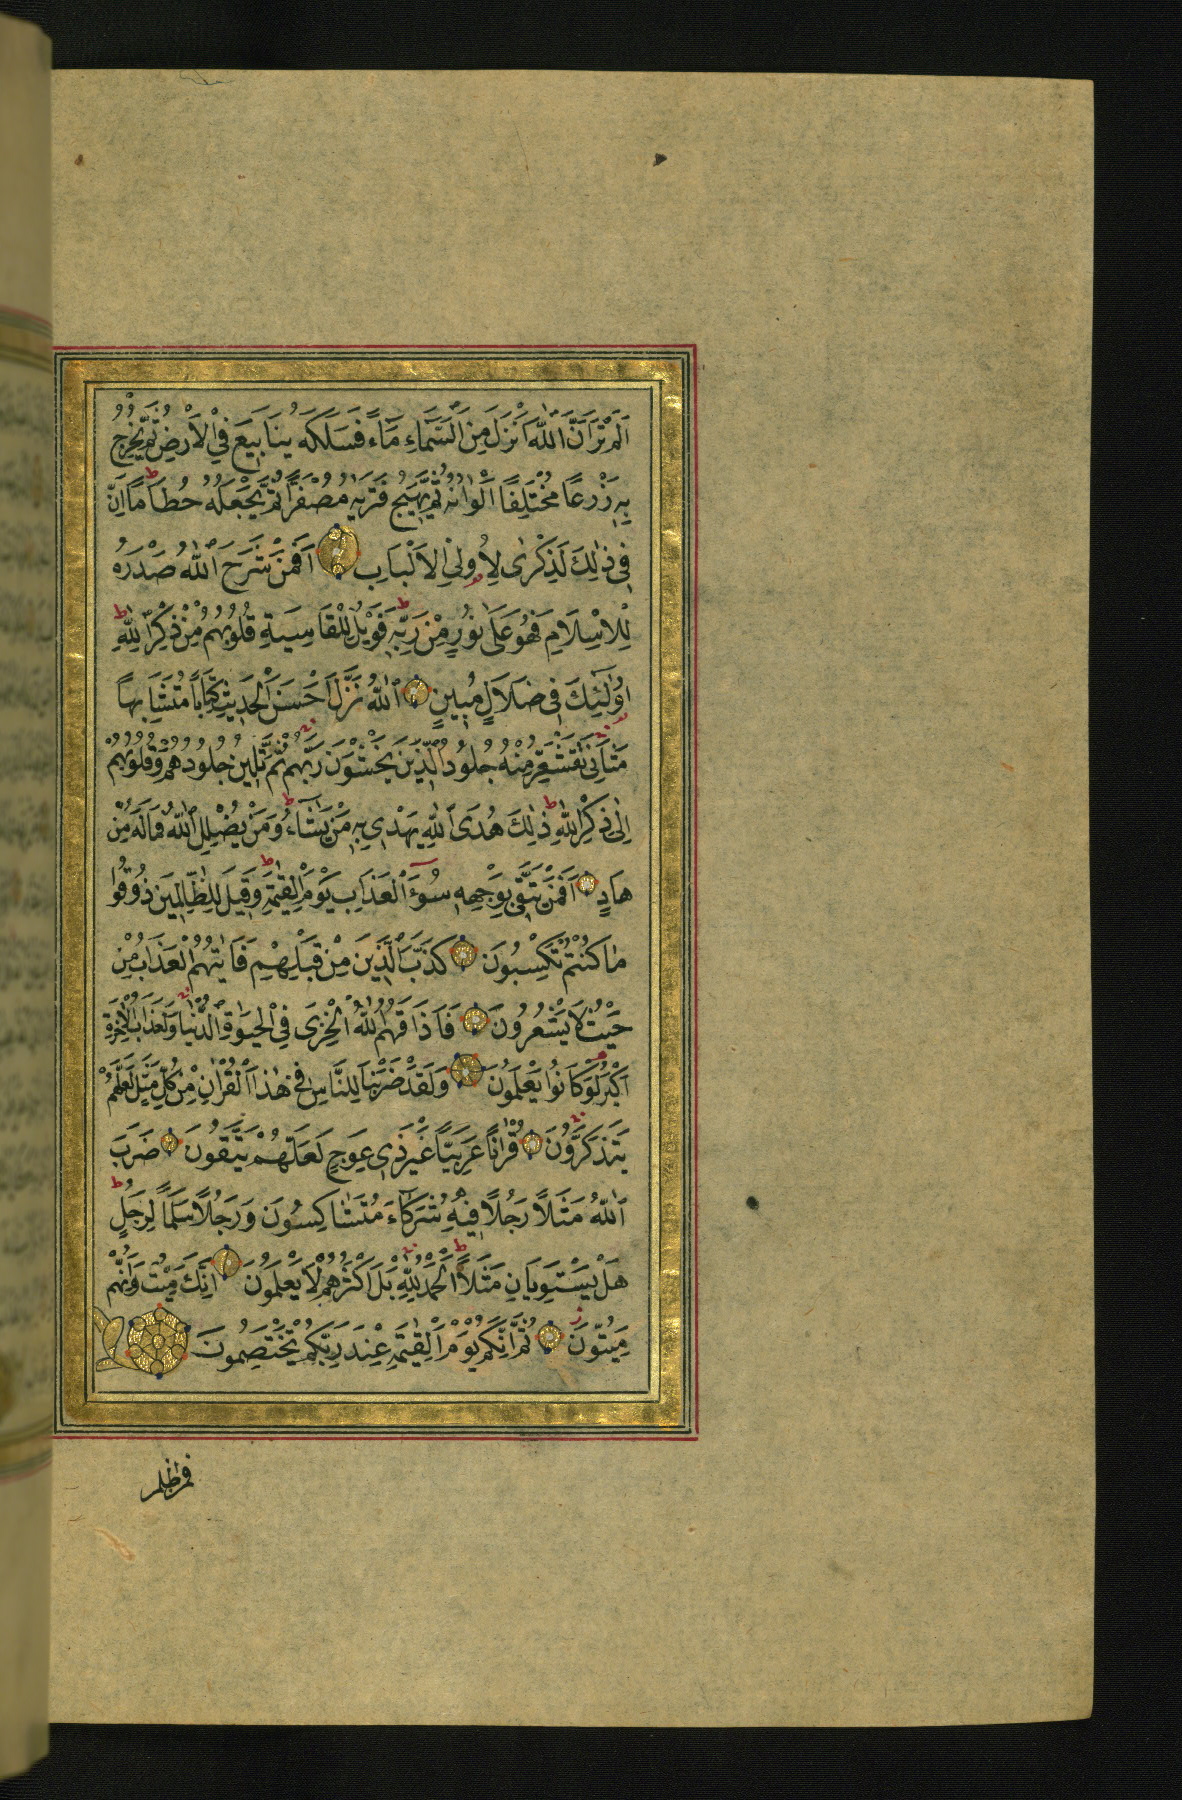 اَلَمْ تَرَ اَنَّ اللّٰهَ اَنْزَلَ مِنَ السَّمَٓاءِ مَٓاءً فَسَلَكَهُ يَنَابِيعَ فِي الْاَرْضِ ثُمَّ يُخْرِجُ
بِهِ زَرْعًا مُخْتَلِفًا اَلْوَانُهُ ثُمَّ يَهِيجُ فَتَرٰيهُ مُصْفَرًّا ثُمَّ يَجْعَلُهُ حُطَامًا ط اِنَّ
فِي ذٰلِكَ لَذِكْرٰى لِاُولِي الْاَلْبَابِ اَفَمَنْ شَرَحَ اللّٰهُ صَدْرَهُ
لِلْاِسْلَامِ فَهُوَ عَلٰى نُورٍ مِنْ رَبِّهِ ط فَوَيْلٌ لِلْقَاسِيَةِ قُلُوبُهُمْ مِنْ ذِكْرِ اللّٰهِ ط
اُولٰٓئِكَ فِي ضَلَالٍ مُبِينٍ اَللّٰهُ نَزَّلَ اَحْسَنَ الْحَدِيثِ كِتَابًا مُتَشَابِهًا
مَثَانِيَ تَقْشَعِرُّ مِنْهُ جُلُودُ الَّذِينَ يَخْشَوْنَ رَبَّهُمْ ثُمَّ تَلِينُ جُلُودُهُمْ وَقُلُوبُهُمْ
اِلٰى ذِكْرِ اللّٰهِ ط ذٰلِكَ هُدَى اللّٰهِ يَهْدِي بِهِ مَنْ يَشَٓاءُ ط وَمَنْ يُضْلِلِ اللّٰهُ فَمَا لَهُ مِنْ
هَادٍ اَفَمَنْ يَتَّقِي بِوَجْهِهِ سُٓوءَ الْعَذَابِ يَوْمَ الْقِيٰمَةِ ط وَقِيلَ لِلظَّالِمِينَ ذُوقُوا
مَا كُنْتُمْ تَكْسِبُونَ كَذَّبَ الَّذِينَ مِنْ قَبْلِهِمْ فَاَتٰيهُمُ الْعَذَابُ مِنْ
حَيْثُ لَا يَشْعُرُونَ فَاَذَاقَهُمُ اللّٰهُ الْخِزْيَ فِي الْحَيٰوةِ الدُّنْيَا وَلَعَذَابُ الْاٰخِرَةِ
اَكْبَرُ لَوْ كَانُوا يَعْلَمُونَ وَلَقَدْ ضَرَبْنَا لِلنَّاسِ فِي هٰذَا الْقُرْاٰنِ مِنْ كُلِّ مَثَلٍ لَعَلَّهُمْ
يَتَذَكَّرُونَ قُرْاٰنًا عَرَبِيًّا غَيْرَ ذِي عِوَجٍ لَعَلَّهُمْ يَتَّقُونَ ضَرَبَ
اللّٰهُ مَثَلًا رَجُلًا فِيهِ شُرَكَٓاءُ مُتَشَاكِسُونَ وَرَجُلًا سَلَمًا لِرَجُلٍ ط
هَلْ يَسْتَوِيَانِ مَثَلًا ط اَلْحَمْدُ لِلّٰهِ بَلْ اَكْثَرُهُمْ لَا يَعْلَمُونَ اِنَّكَ مَيِّتٌ وَاِنَّهُمْ
مَيِّتُونَ ثُمَّ اِنَّكُمْ يَوْمَ الْقِيٰمَةِ عِنْدَ رَبِّكُمْ تَخْتَصِمُونَ
فمن اظلم